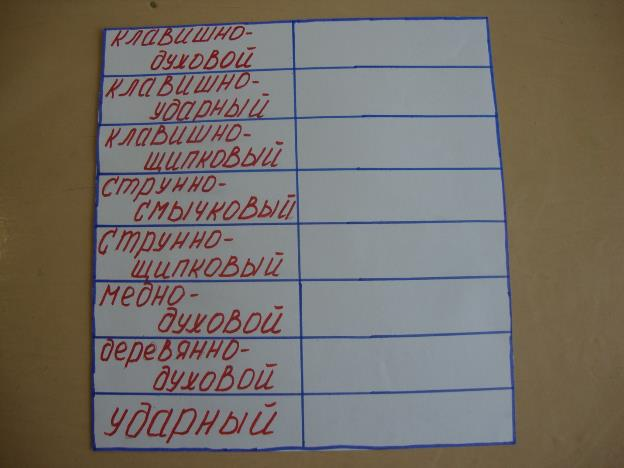 клавишно-
духовой
клавишно-
ударный
клавишно-
щипковый
струнно-
смычковый
струнно-
щипковый
медно-
духовой
деревянно-
духовой
ударный